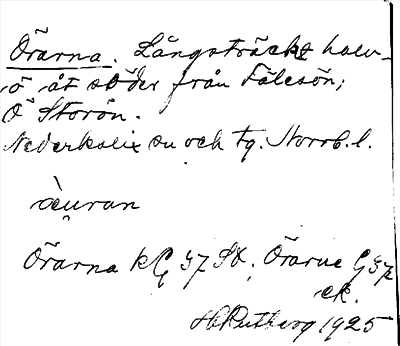 Örarna. Långsträckt halv-
ö åt söder från Fälesön;
Ö Storön.
Nederkalix sn och tg. Norrb. l.
Örarna kG 37 SO. Örarne G 37
ek.
H Rutberg 1925